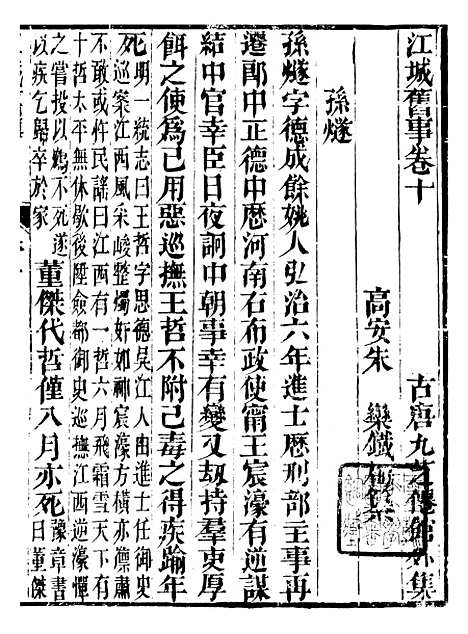 江城舊事卷十
古唐九芝僊館外集
高安朱 欒鐵梅集
孫燧
孫燧字德成餘姚人弘治六年進士歷刑部主事再
遷郎中正德中歷河南右布政使甯王宸濠有逆謀
結中官幸臣日夜詗中朝事幸有變又劫持羣吏厚
餌之使為己用惡巡撫王哲不附己毒之得疾踰年
死明一統志曰王哲字思德吳江人由進士任御史
及巡案江西風采峻整燭奸如神宸濠方橫亦僡肅
不敢或忤民謠曰江西有一哲六月飛霜雪天下有
十哲太平無休歇後陞僉都御史巡撫江西逆濠憚
之嘗投以鴆不死遂
以疾乞歸卒於家
董傑代哲僅八月亦死
豫章書
曰董傑